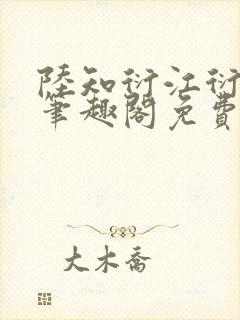 陸知衍江衍
筆趣閣免費
大木喬